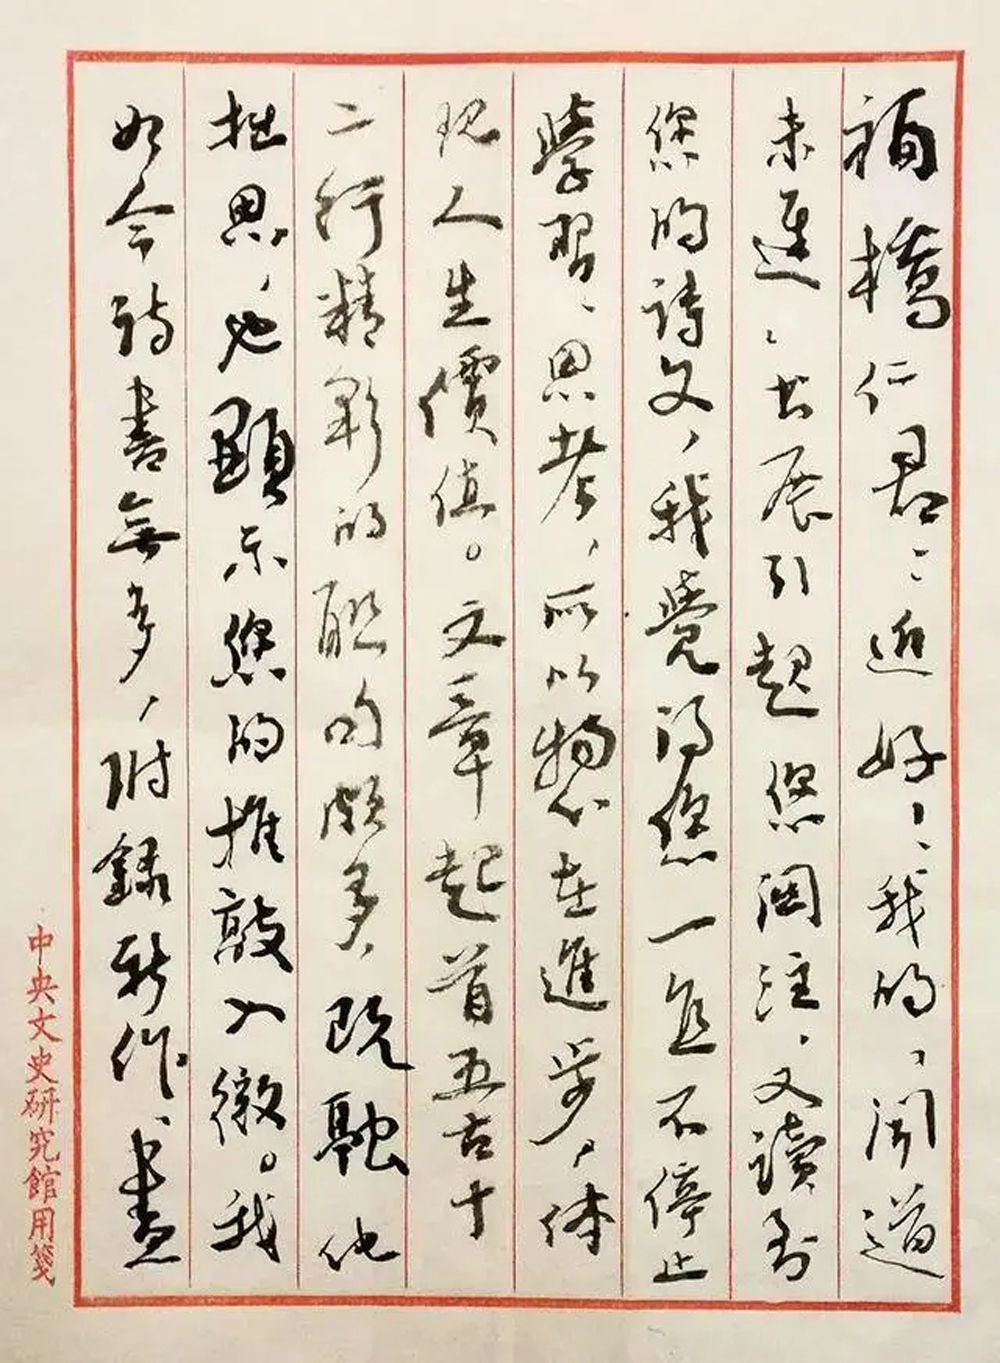 福橋仁君：近好！我的、聞道
未遲、书展引起您関注，又讀到
您的詩文，我覺得您一直不停止
學習、思考，所以總在進步，体
現人生價值。文章起首五古十
二行精彩的聯句頗多，既融化
拙思，也顯示您的推敲入微。我
如今詩書無多，附錄新作，
中央文史研究館用箋